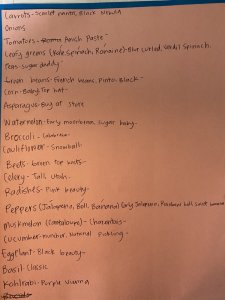 Carrots - Scarlet nantes, Black Nebula
Onions
Tomatoes - Amish Paste
Leafy greens (Kale, Spinach, Romaine) - Blue curled, Spinach,
Peas - sugar daddy
Green beans - French beans, Pinto, Black
Corn - Baby, Top hat
Asparagus - Buy at store
Watermelon - Early moonbeam, sugar baby
Broccoli - Calabrese
Cauliflower - Snowball
Beets - Green top
Celery - Tall, Utah
Radishes - Pink beauty
Peppers (Jalapeño, Bell, Banana) Early Jalapeno, Rainbow bell, sweet banana
Muskmelon (Cantaloupe) - Charentais
Cucumber - National Pickling
Eggplant - Black beauty
Basil - Classic
Kohlrabi - Purple Vienna